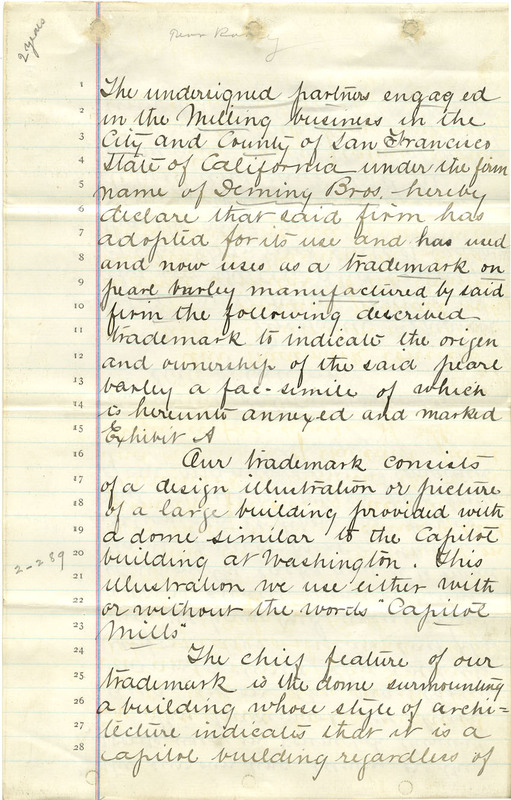 2 years
Pearl Barley
1 The undersigned partners engaged
2 in the Milling business in the
3 City and County of San Francisco
4 State of California under the firm
5 name of Deming Bros. hereby
6 declare that said firm has
7 adopted for its use and has used
8 and now uses as a trademark on
9 pearl barley manufactured by said
10 firm the following described
11 trademark to indicate the origin
12 and ownership of the said pearl
13 barley a fac-simile of which
14 is hereunto annexed and marked
15 Exhibit A
16 Our trademark consists
17 of a design illustration or picture
18 of a large building provided with
19 a dome similar to the Capitol
20 building at Washington. This
2-2-89
21 illustration we use either with
22 or without the words "Capitol
23 Mills"
24 The chief feature of our
25 trademark is the dome surmounting
26 a building whose style of archi=
27 tecture indicates that it is a
28 capitol building regardless of